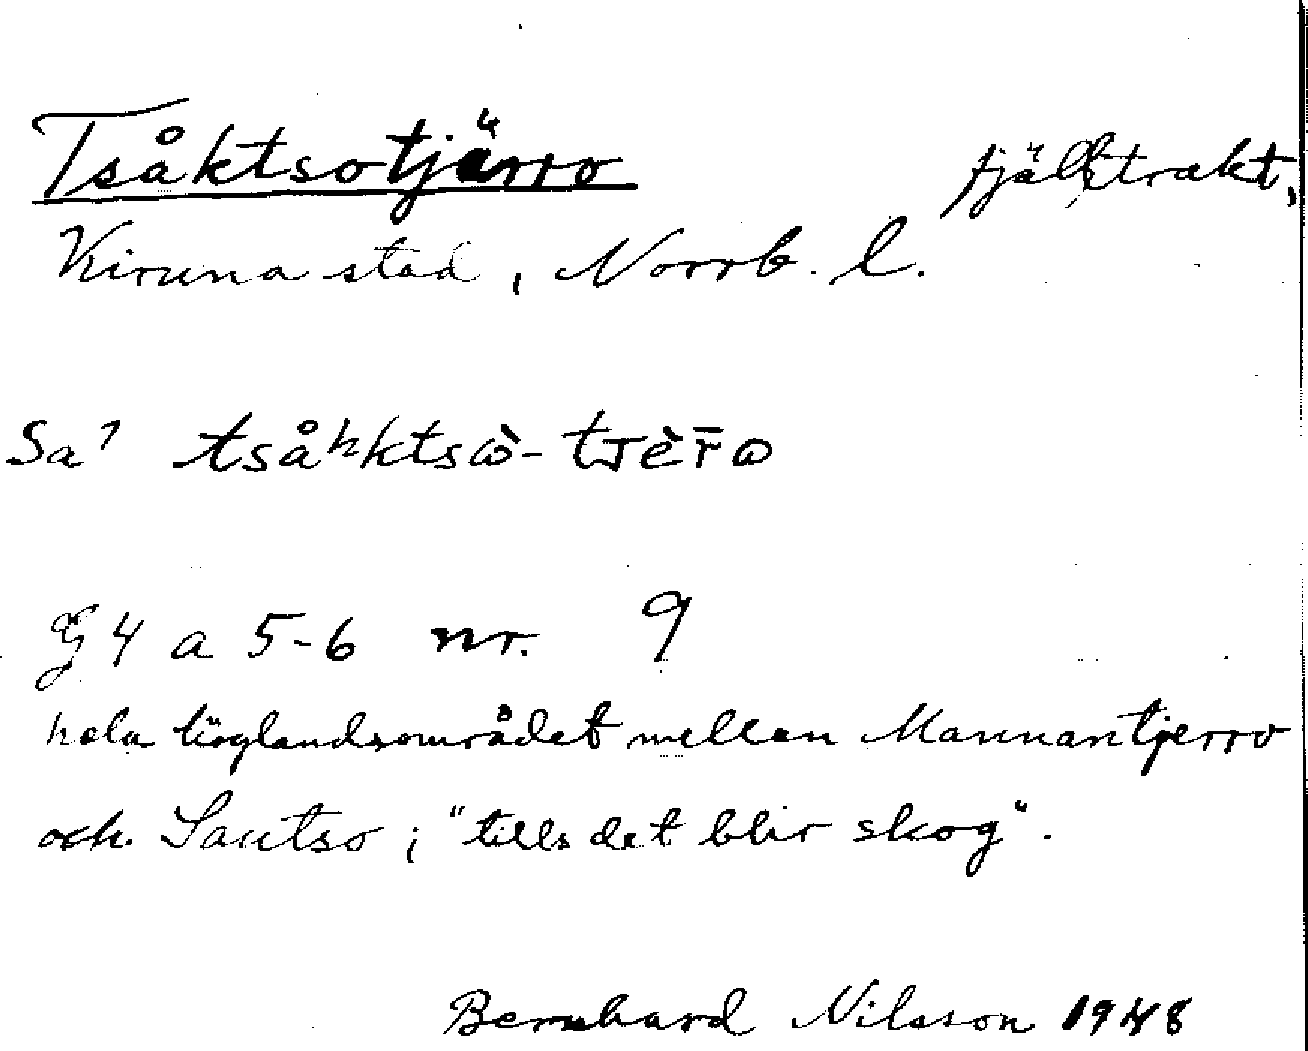 Tsåktsotjärro fjälltrakt,
Kiruna stad, Norrb. l.
Sa tsåhktsò- tjèr̄o
4 a 5-6 nr. 9
hela höglandsområdet mellan Mannantjerro
och Sautso; "tills det blir skog".
Bernhard Nilsson 1948